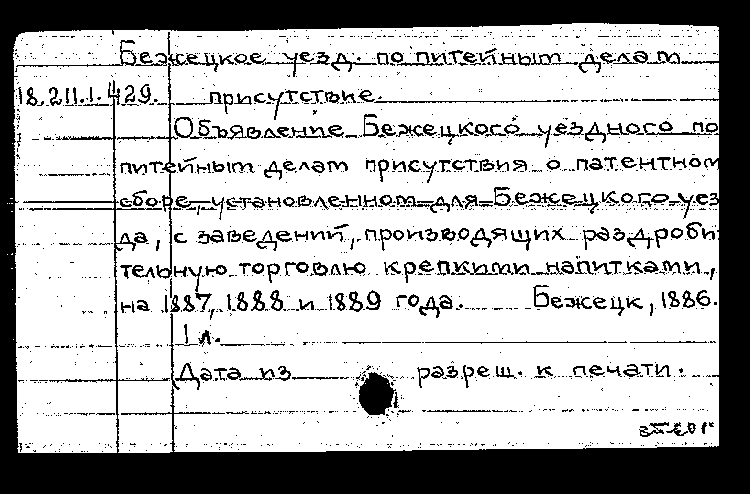 Бежецкое уезд. по питейным делам
18.211.1.429. присутствие.
Объявление Бежецкого уездного по
питейным делам присутствия о патентном
сборе, установленном для Бежецкого уез
да, с заведений, производящих раздроби
тельную торговлю крепкими напитками,
на 1887, 1888 и 1889 года. Бежецк, 1886.
1 л.
Дата из разреш. к печати.